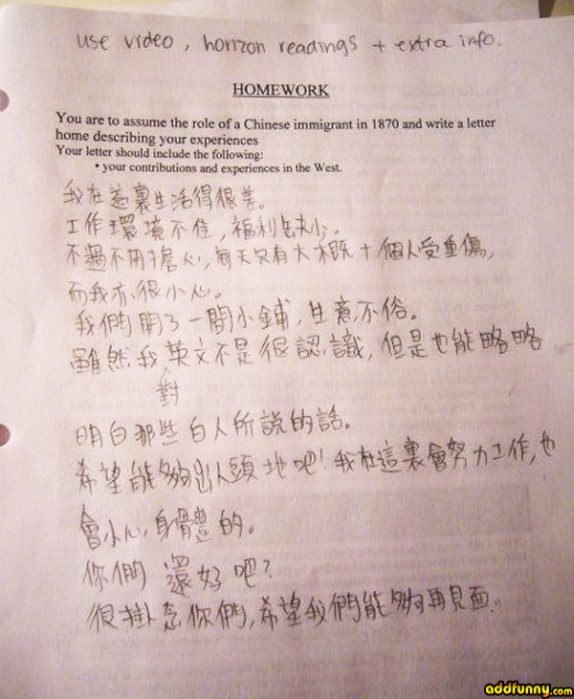 use video, horizon readings + extra info.
HOMEWORK
You are to assume the role of a Chinese immigrant in 1870 and write a letter
home describing your experiences
Your letter should include the following:
• your contributions and experiences in the West.
我在這裏生活得很差。
工作環境不佳，福利缺少。
不過不用擔心，每天只有大概十個人受重傷，
而我亦很小心。
我們開了一間小鋪，生意不俗。
雖然我對英文不是很認識，但是也能略略
明白那些白人所說的話。
希望能夠出人頭地吧！我在這裏會努力工作，也
會小心身體的。
你們還好吧？
很掛念你們，希望我們能夠再見面。
addfunny.com